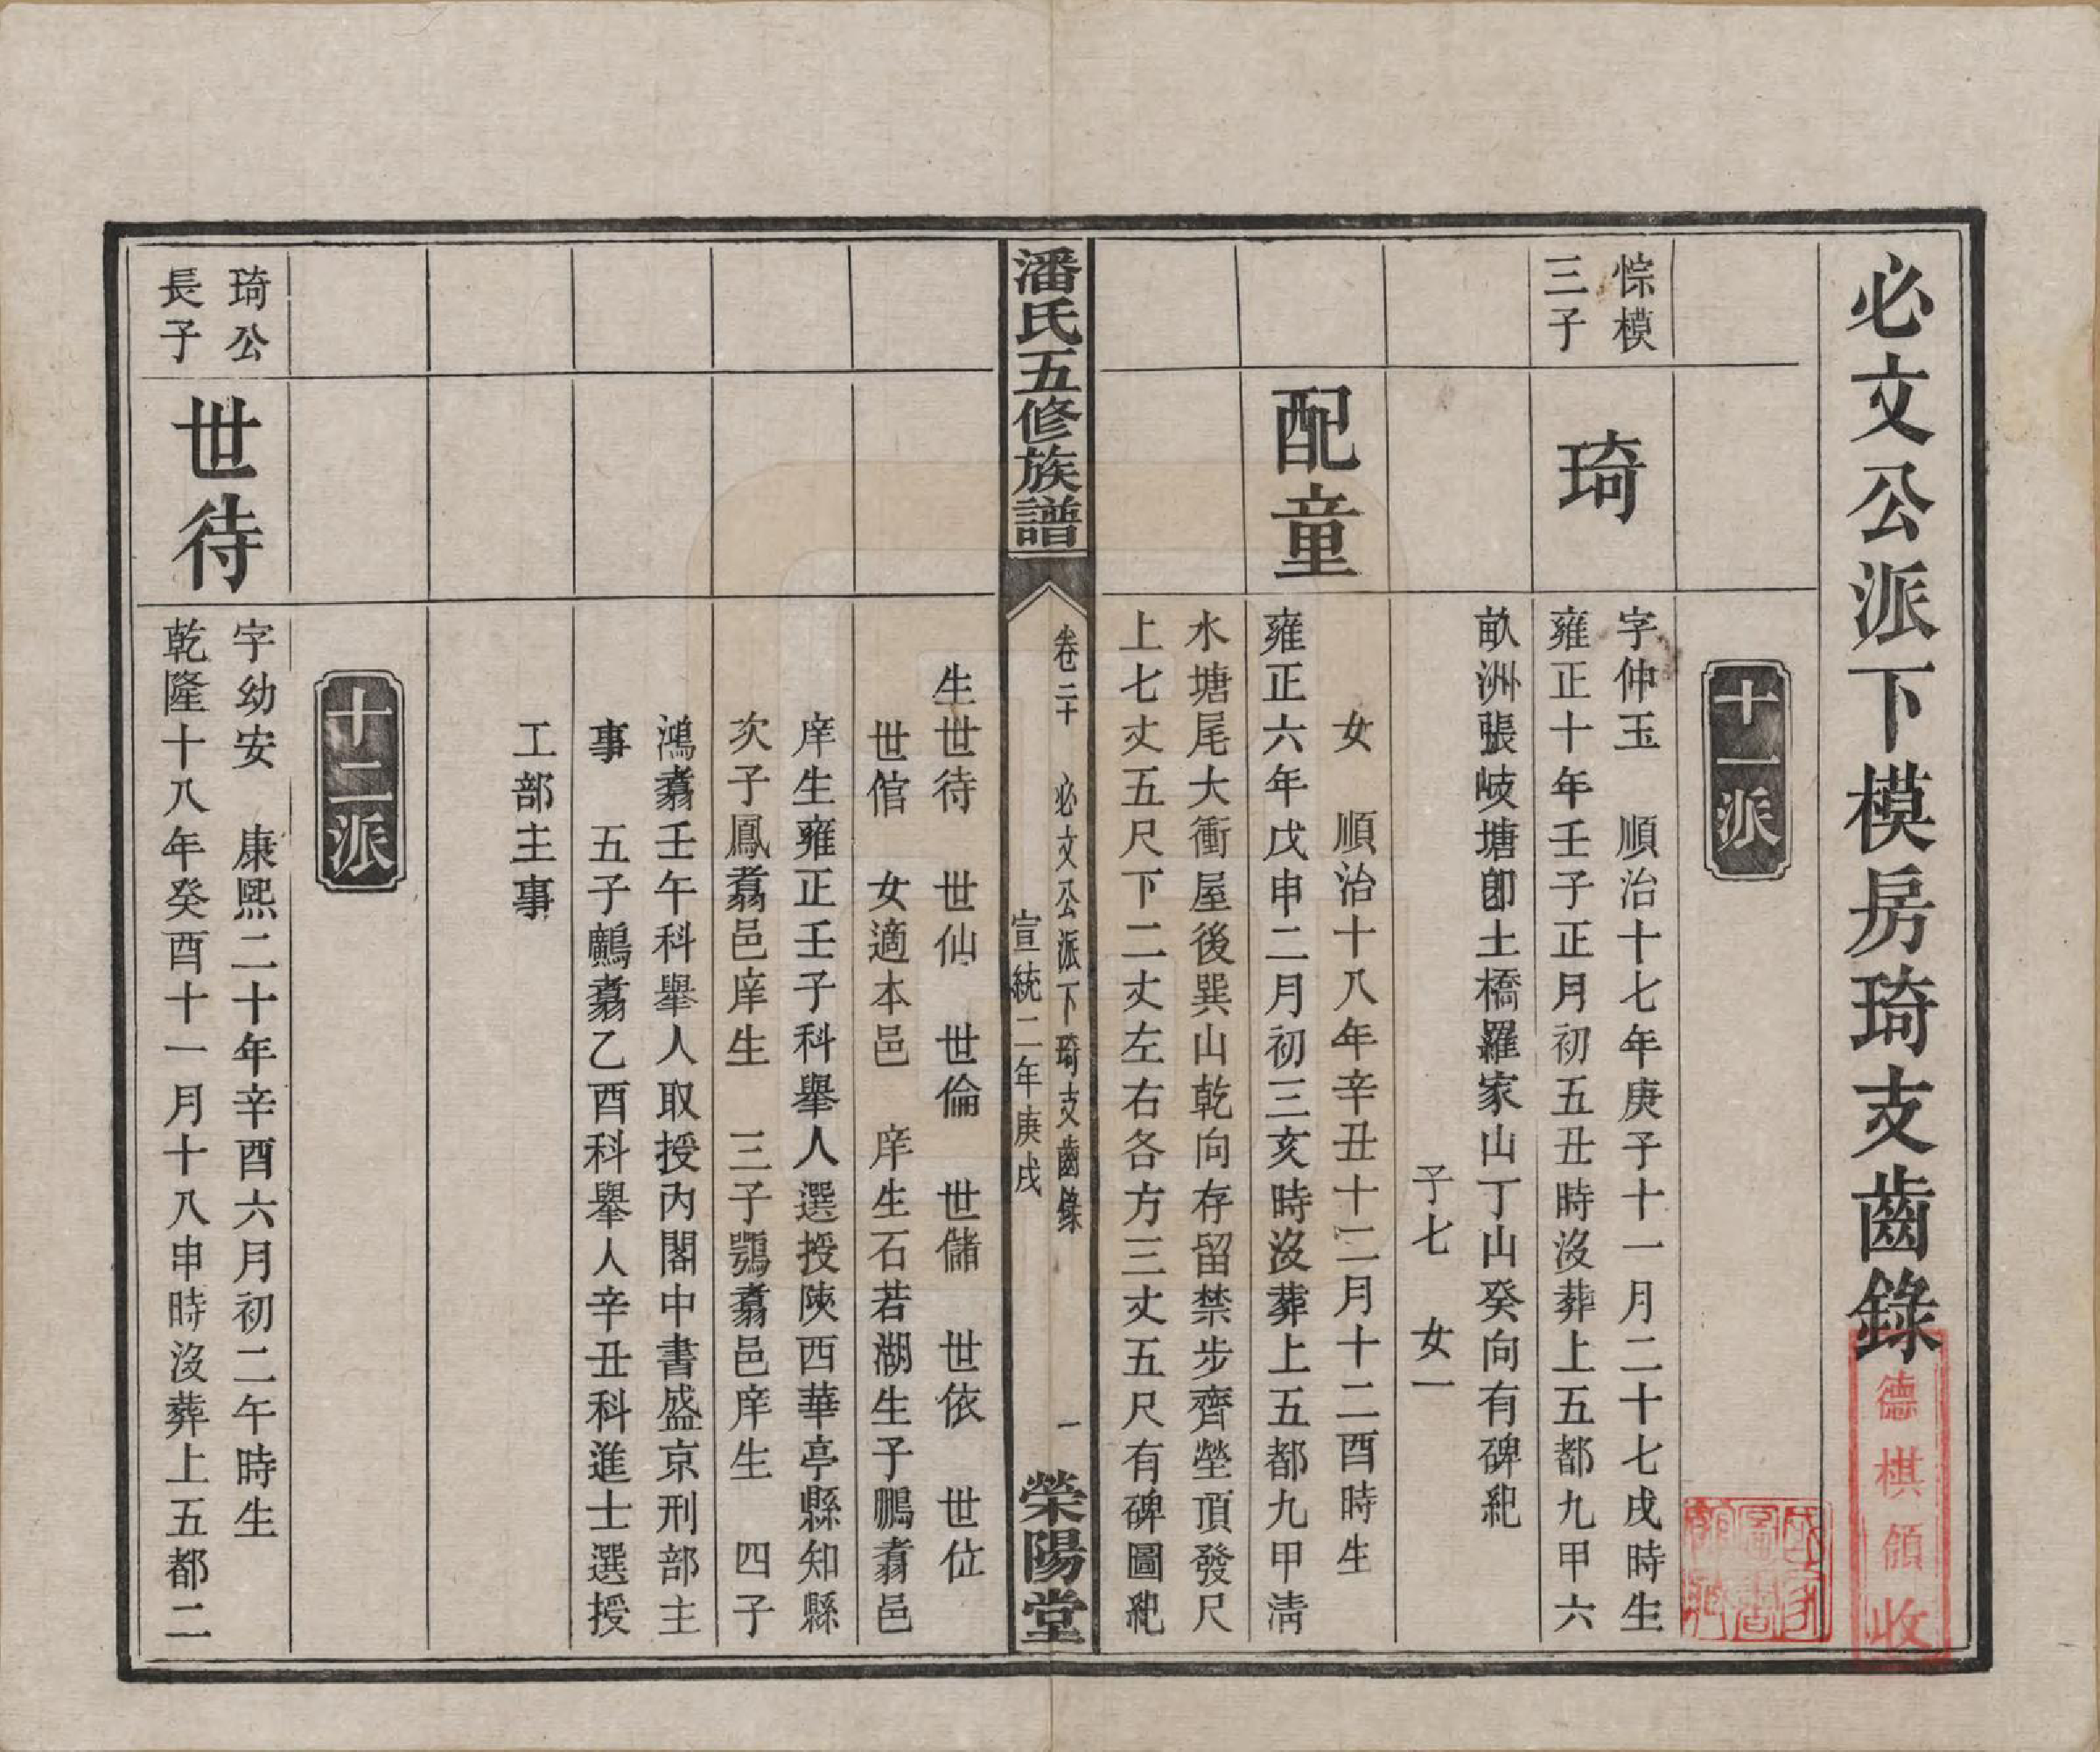 必文公派下模房琦支齒錄
德棋領收
十一派
悰模
三子
琦
字仲玉　順治十七年庚子十一月二十七戌時生
雍正十年壬子正月初五丑時沒葬上五都九甲六
畝洲張岐塘卽土橋羅家山丁山癸向有碑紀
子七　女一
配童
女　順治十八年辛丑十二月十二酉時生
雍正六年戊申二月初三亥時沒葬上五都九甲淸
水塘尾大衝屋後巽山乾向存留禁步齊塋頂發尺
上七丈五尺下二丈左右各方三丈五尺有碑圖紀
潘氏五修族譜
卷二十　必文公派下琦支齒錄　一
宣統二年庚戌
榮陽堂
生世待　世仙　世倫　世儲　世依　世位
世倌　女適本邑　庠生石若湖生子鵬翥邑
庠生雍正壬子科舉人選授陝西華亭縣知縣
次子鳳翥邑庠生　三子鶚翥邑庠生　四子
鴻翥壬午科舉人取授內閣中書盛京刑部主
事　五子鸕翥乙酉科舉人辛丑科進士選授
工部主事
十二派
琦公
長子
世待
字幼安　康熙二十年辛酉六月初二午時生
乾隆十八年癸酉十一月十八申時沒葬上五都二